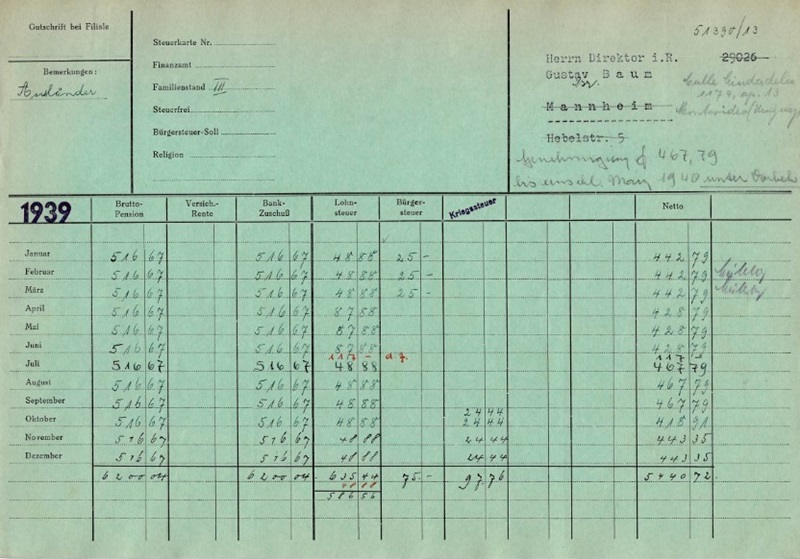 Gutschrift bei Filiale
Bemerkungen:
Ausländer
Steuerkarte Nr.
Finanzamt
Familienstand III
Steuerfrei
Bürgersteuer-Soll
Religion
51330/13
Herrn Direktor i.R. 29026
Gustav Baum
Mannheim
1179, ap. 13
Montevideo/Uruguay
Hebelstr. 5
Genehmigung 467,79
bis einschl. März 1940 unter
1939 Brutto-Pension Versich.-Rente Bank-Zuschuß Lohn-steuer Bürger-steuer Kriegssteuer Netto
Januar 516 67 516 67 48 88 25 - 442 79
Februar 516 67 516 67 48 88 25 - 442 79
März 516 67 516 67 48 88 25 - 442 79
April 516 67 516 67 87 88 428 79
Mai 516 67 516 67 87 88 428 79
Juni 516 67 516 67 87 88 428 79
117 - 117 -
Juli 516 67 516 67 48 88 467 79
August 516 67 516 67 48 88 467 79
September 516 67 516 67 48 88 467 79
24 44
Oktober 516 67 516 67 48 88 24 44 418 91
November 516 67 516 67 48 88 24 44 443 35
Dezember 516 67 516 67 48 88 24 44 443 35
6200 04 6200 04 635 44 75 - 97 76 5440 72
48 88
586 56